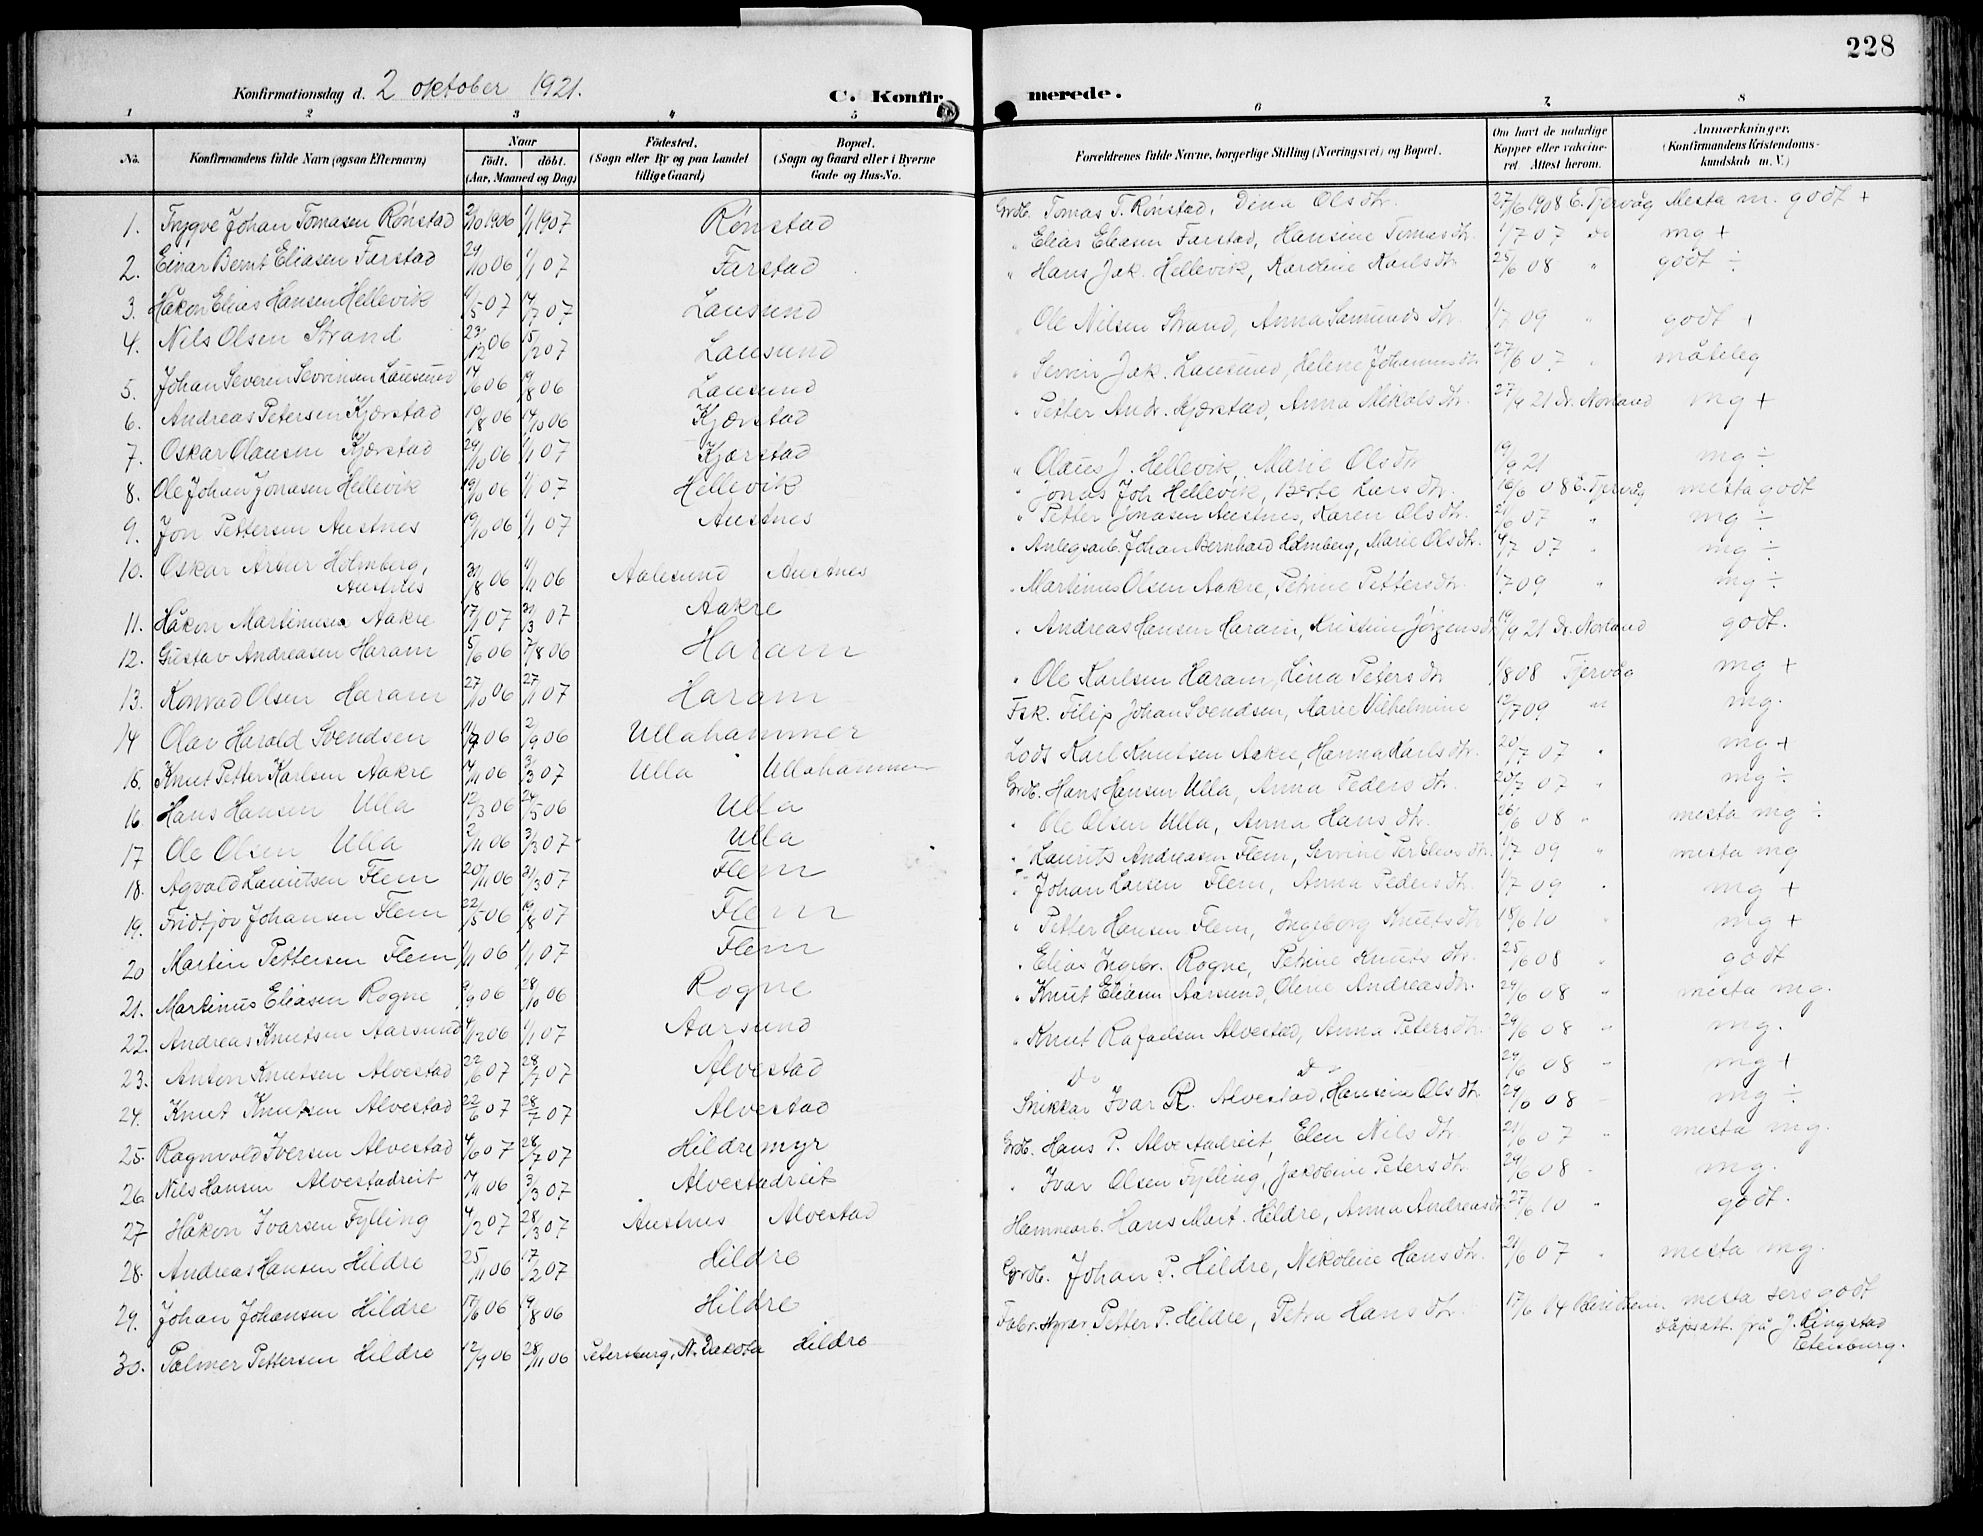 228
Konfirmationsdag d. 2 oktober 1921. C. Konfirmerede.
1 2 3 4 5 6 7 8
No. Konfirmandens fulde Navn (ogsaa Efternavn) Naar født. døbt. (Aar, Maaned og Dag) Fødested. (Sogn eller By og paa Landet tillige Gaard) Bopæl. (Sogn og Gaard eller i Byerne Gade og Hus-No. Forældrenes fulde Navne, borgerlige Stilling (Næringsvei) og Bopæl. Om havt de naturlige Kopper eller vakcineret. Attest herom. Anmærkninger. (Konfirmandens Kristendomskundskab m. V.)
1. Trygve Johan Tomasen Rønstad 2/10 1906 1/1 1907 Rønstad Grdb. Tomas T. Rønstad, Dina Olsdtr. 27/6 1908 E. Tjervåg Mesta m. godt +
2. Einar Bernt Eliasen Farstad 29/10 06 1/1 07 Farstad " Elias Eliasen Farstad, Hansine Tomasdtr. 1/7 07 do mg +
3. Håkon Elias Hansen Hellevik 11/5 07 14/7 07 Lausund " Hans Jak. Hellevik, Karoline Karlsdtr. 25/6 08 " godt ÷
4. Nils Olsen Strand 23/12 06 15/2 07 Lausund " Ole Nilsen Strand, Anna Samundsdtr. 1/7 09 " godt +
5. Johan Severen Sevrinsen Lausund 14/6 06 19/8 06 Lausund " Sevrin Jak. Lausund, Helene Johannesdtr. 27/6 07 " måteleg
6. Andreas Petersen Kjærstad 10/8 06 14/10 06 Kjærstad " Petter Andr. Kjærstad, Anna Nikolsdtr. 27/9 21 Dr. Norland mg +
7. Oskar Olausen Kjærstad 24/10 06 1/1 07 Kjærstad " Olaus J. Hellevik, Marie Olsdtr 19/9 21 mg ÷
8. Ole Johan Jonasen Hellevik 19/10 06 1/1 07 Hellevik " Jonas Joh Hellevik, Berte Larsdtr. 16/6 08 E. Tjervåg mesta godt
9. Jon Pettersen Austnes 19/10 06 1/1 07 Austnes " Petter Jonasen Austnes, Karen Olsdtr. 21/6 07 " mg ÷
10. Oskar Artur Holmberg, Austnes 30/8 06 4/11 06 Aalesund Austnes " Anlegsarb. Johan Bernhard Holmberg, Marie Olsdtr. 4/7 07 " mg ÷
11. Håkon Martinusen Aakre 17/1 07 30/3 07 Aakre " Martinus Olsen Aakre, Petrine Pettersdtr. 1/7 09 " mg ÷
12. Gustav Andreasen Haram 5/6 06 7/8 06 Haram " Andreas Hansen Haram, Kristine Jørgensdtr 19/9 21 Dr. Norland godt.
13. Konrad Olsen Haram 27/10 06 27/1 07 Haram " Ole Karlsen Haram, Lina Petersdtr 1/8 08 Tjervåg mg +
14 Olav Harald Svendsen 11/7 06 2/9 06 Ullahammer Fsk. Filip Johan Svendsen, Marie Vilhelmine 12/7 09 " mg.
15. Knut Petter Karlsen Aakre 14/11 06 3/3 07 Ulla Ullahammer Lods Karl Knutsen Aakre, Hanna Karlsdtr. 20/7 07 " mg +
16 Hans Hansen Ulla 12/3 06 24/5 06 Ulla Grdb. Hans Hansen Ulla, Anna Pedersdtr. 20/7 07 " mg ÷
17 Ole Olsen Ulla 2/11 06 3/3 07 Ulla " Ole Olsen Ulla, Anna Hansdtr. 26/6 08 " mesta mg ÷
18. Agvald Lauritsen Flem 20/11 06 31/3 07 Flem " Laurits Andreasen Flem, Sevrine Per Eliasdtr. 1/7 09 " mesta mg
19. Fridtjov Johansen Flem 22/5 06 19/8 07 Flem " Johan Larsen Flem, Anna Pedersdtr. 1/7 09 " mg +
20 Martin Pettersen Flem 1/11 06 1/1 07 Flem " Petter Hansen Flem, Ingeborg Knutsdtr. 18/6 10 " mg +
21. Martinus Eliasen Rogne 9/9 06 28/10 06 Rogne " Elias Ingebr. Rogne, Petrine Knutsdtr. 25/6 08 " godt
22. Andreas Knutsen Aarsund 4/12 06 1/1 07 Aarsund " Knut Eliasen Aarsund, Oline Andreasdtr. 29/6 08 " mesta mg.
23. Anton Knutsen Alvestad 22/6 07 28/7 07 Alvestad " Knut Rafaelsen Alvestad, Anna Petersdtr. 29/6 08 " mg.
24. Knut Knutsen Alvestad 22/6 07 28/7 07 Alvestad Do Do 29/6 08 " mg +
25. Ragnvald Iversen Alvestad 4/6 07 28/7 07 Hildremyr Snikkar Ivar R. Alvestad, Hansine Olsdtr. 29/6 08 " mg ÷
26. Nils Hansen Alvestadreit 14/11 06 3/3 07 Alvestadreit Grdb. Hans P. Alvestadreit, Elen Nilsdtr. 21/6 07 " mesta mg.
27 Håkon Ivarsen Fylling 4/2 07 28/3 07 Austnes Alvestad " Ivar Olsen Fylling, Jakobine Petersdtr. 29/6 08 " mg.
28. Andreas Hansen Hildre 25/11 06 17/2 07 Hildre Hamnearb. Hans Mart. Hildre, Anna Andreasdtr. 27/6 10 " godt.
29. Johan Johansen Hildre 17/6 06 19/8 06 Hildre Grdb. Johan P. Hildre, Nekoline Hansdtr. 21/6 07 " mesta mg.
30. Palmer Pettersen Hildre 12/9 06 28/11 06 Petersburg, N. Dakota Hildre Fabr.styrar Petter P. Hildre, Petra Hansdtr. 17/6 14 mesta sers godt
Dåpsatt. frå J. Ringstad
Petersburg.